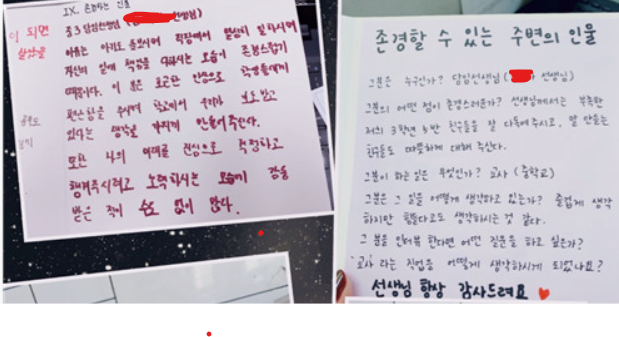 IX. 존경하는 인물
중3 담임선생님 ( 선생님)
이유는 아이도 돌보시며 직장에서 열심히 일하시며
자신의 일에 책임을 다하시는 모습이 존경스럽기
때문이다. 이 분은 포근한 인상으로 학생들에게
편안함을 주시며 학교에서 우리가 보호받고
있다는 생각을 하게 만들어주신다.
또한 나의 미래를 진심으로 걱정하고
챙겨주시려고 노력하시는 모습에 감동
받은 적이 수도 없이 많다.
이 되면
싶었을
존경할 수 있는 주변의 인물
그분은 누구인가? 담임선생님 ( 선생님)
그분의 어떤 점이 존경스러운가? 선생님께서는 부족한
저희 3학년 반 친구들을 잘 다독여주시고, 말 안듣는
친구들도 따뜻하게 대해 주신다.
그분이 하는 일은 무엇인가? 교사 (중학교)
그분은 그 일을 어떻게 생각하고 있는가? 즐겁게 생각
하지만 힘들다고도 생각하시는 것 같다.
그 분을 인터뷰 한다면 어떤 질문을 하고 싶은가?
'교사'라는 직업을 어떻게 생각하시게 되었나요?
선생님 항상 감사드려요 ♥